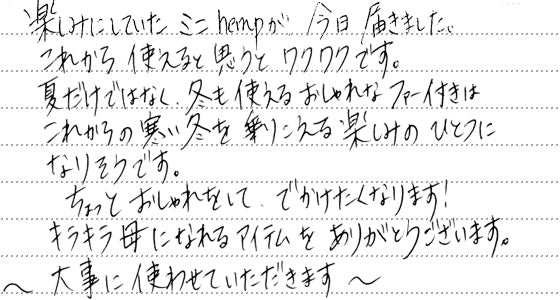 楽しみにしていた ミニhempが 今日 届きました。
これから 使えると思うと ワクワクです。
夏だけではなく、冬も使える おしゃれな ファー付きは
これからの 寒い冬を 乗りこえる 楽しみの ひとつに
なりそうです。
ちょっと おしゃれをして、でかけたくなります!
キラキラ母に なれる アイテムを ありがとうございます。
〜 大事に 使わせていただきます 〜